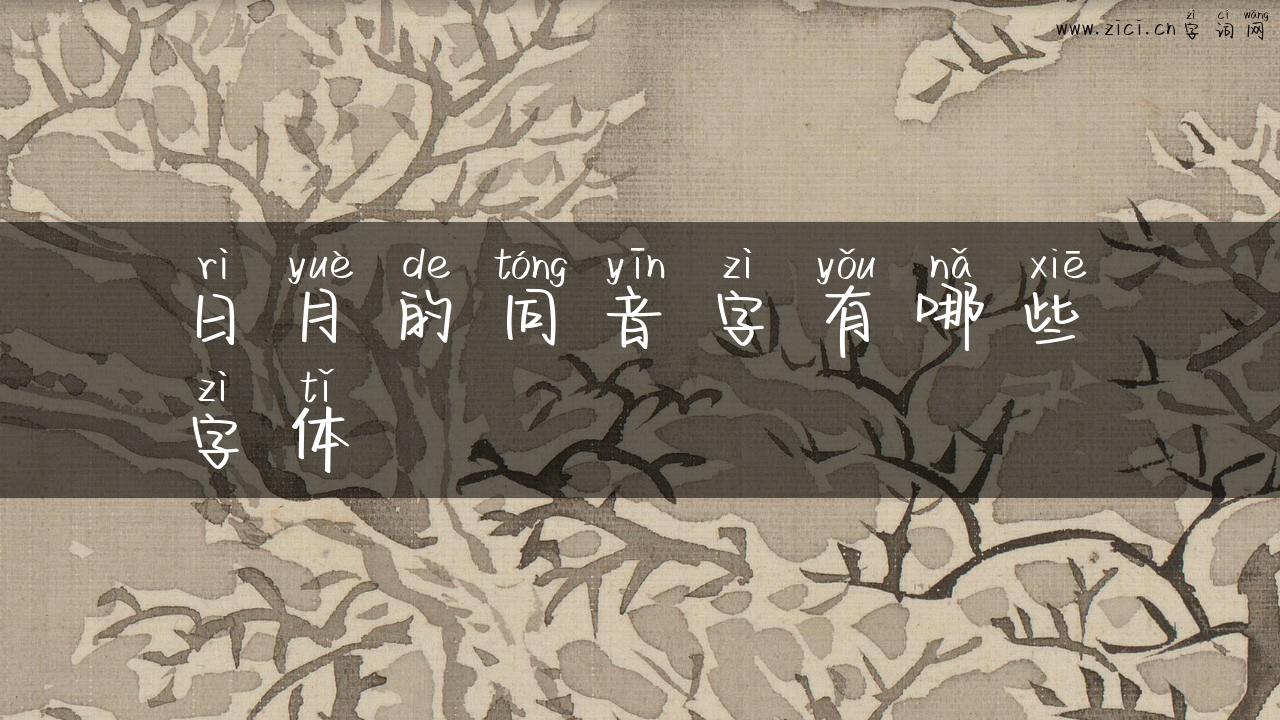 zì cí wǎng
www.zici.cn 字 词 网
rì yuè de tóng yīn zì yǒu nǎ xiē
日 月 的 同 音 字 有 哪 些
zì tǐ
字 体